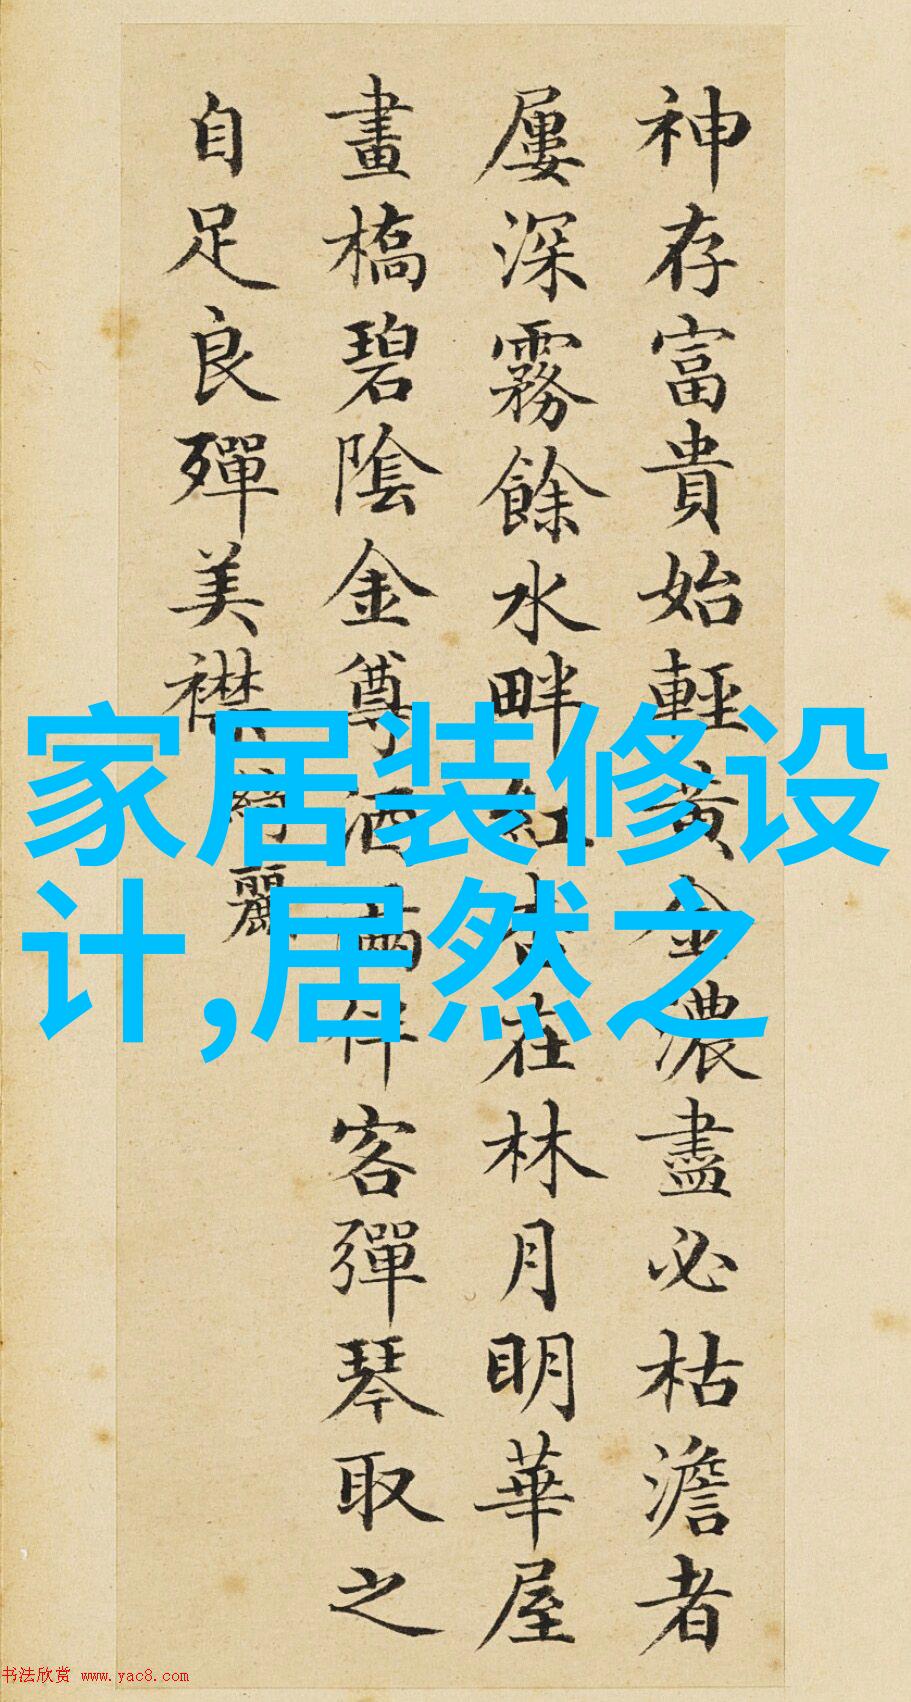 神存富貴始輕黃金濃盡必枯澹者
屢深霧餘水畔紅杏在林月明華屋
畫橋碧陰金尊酒滿伴客彈琴取之
自足良殫美襟 綺麗
家居装修设
计,居然之
书法欣赏 www.yac8.com